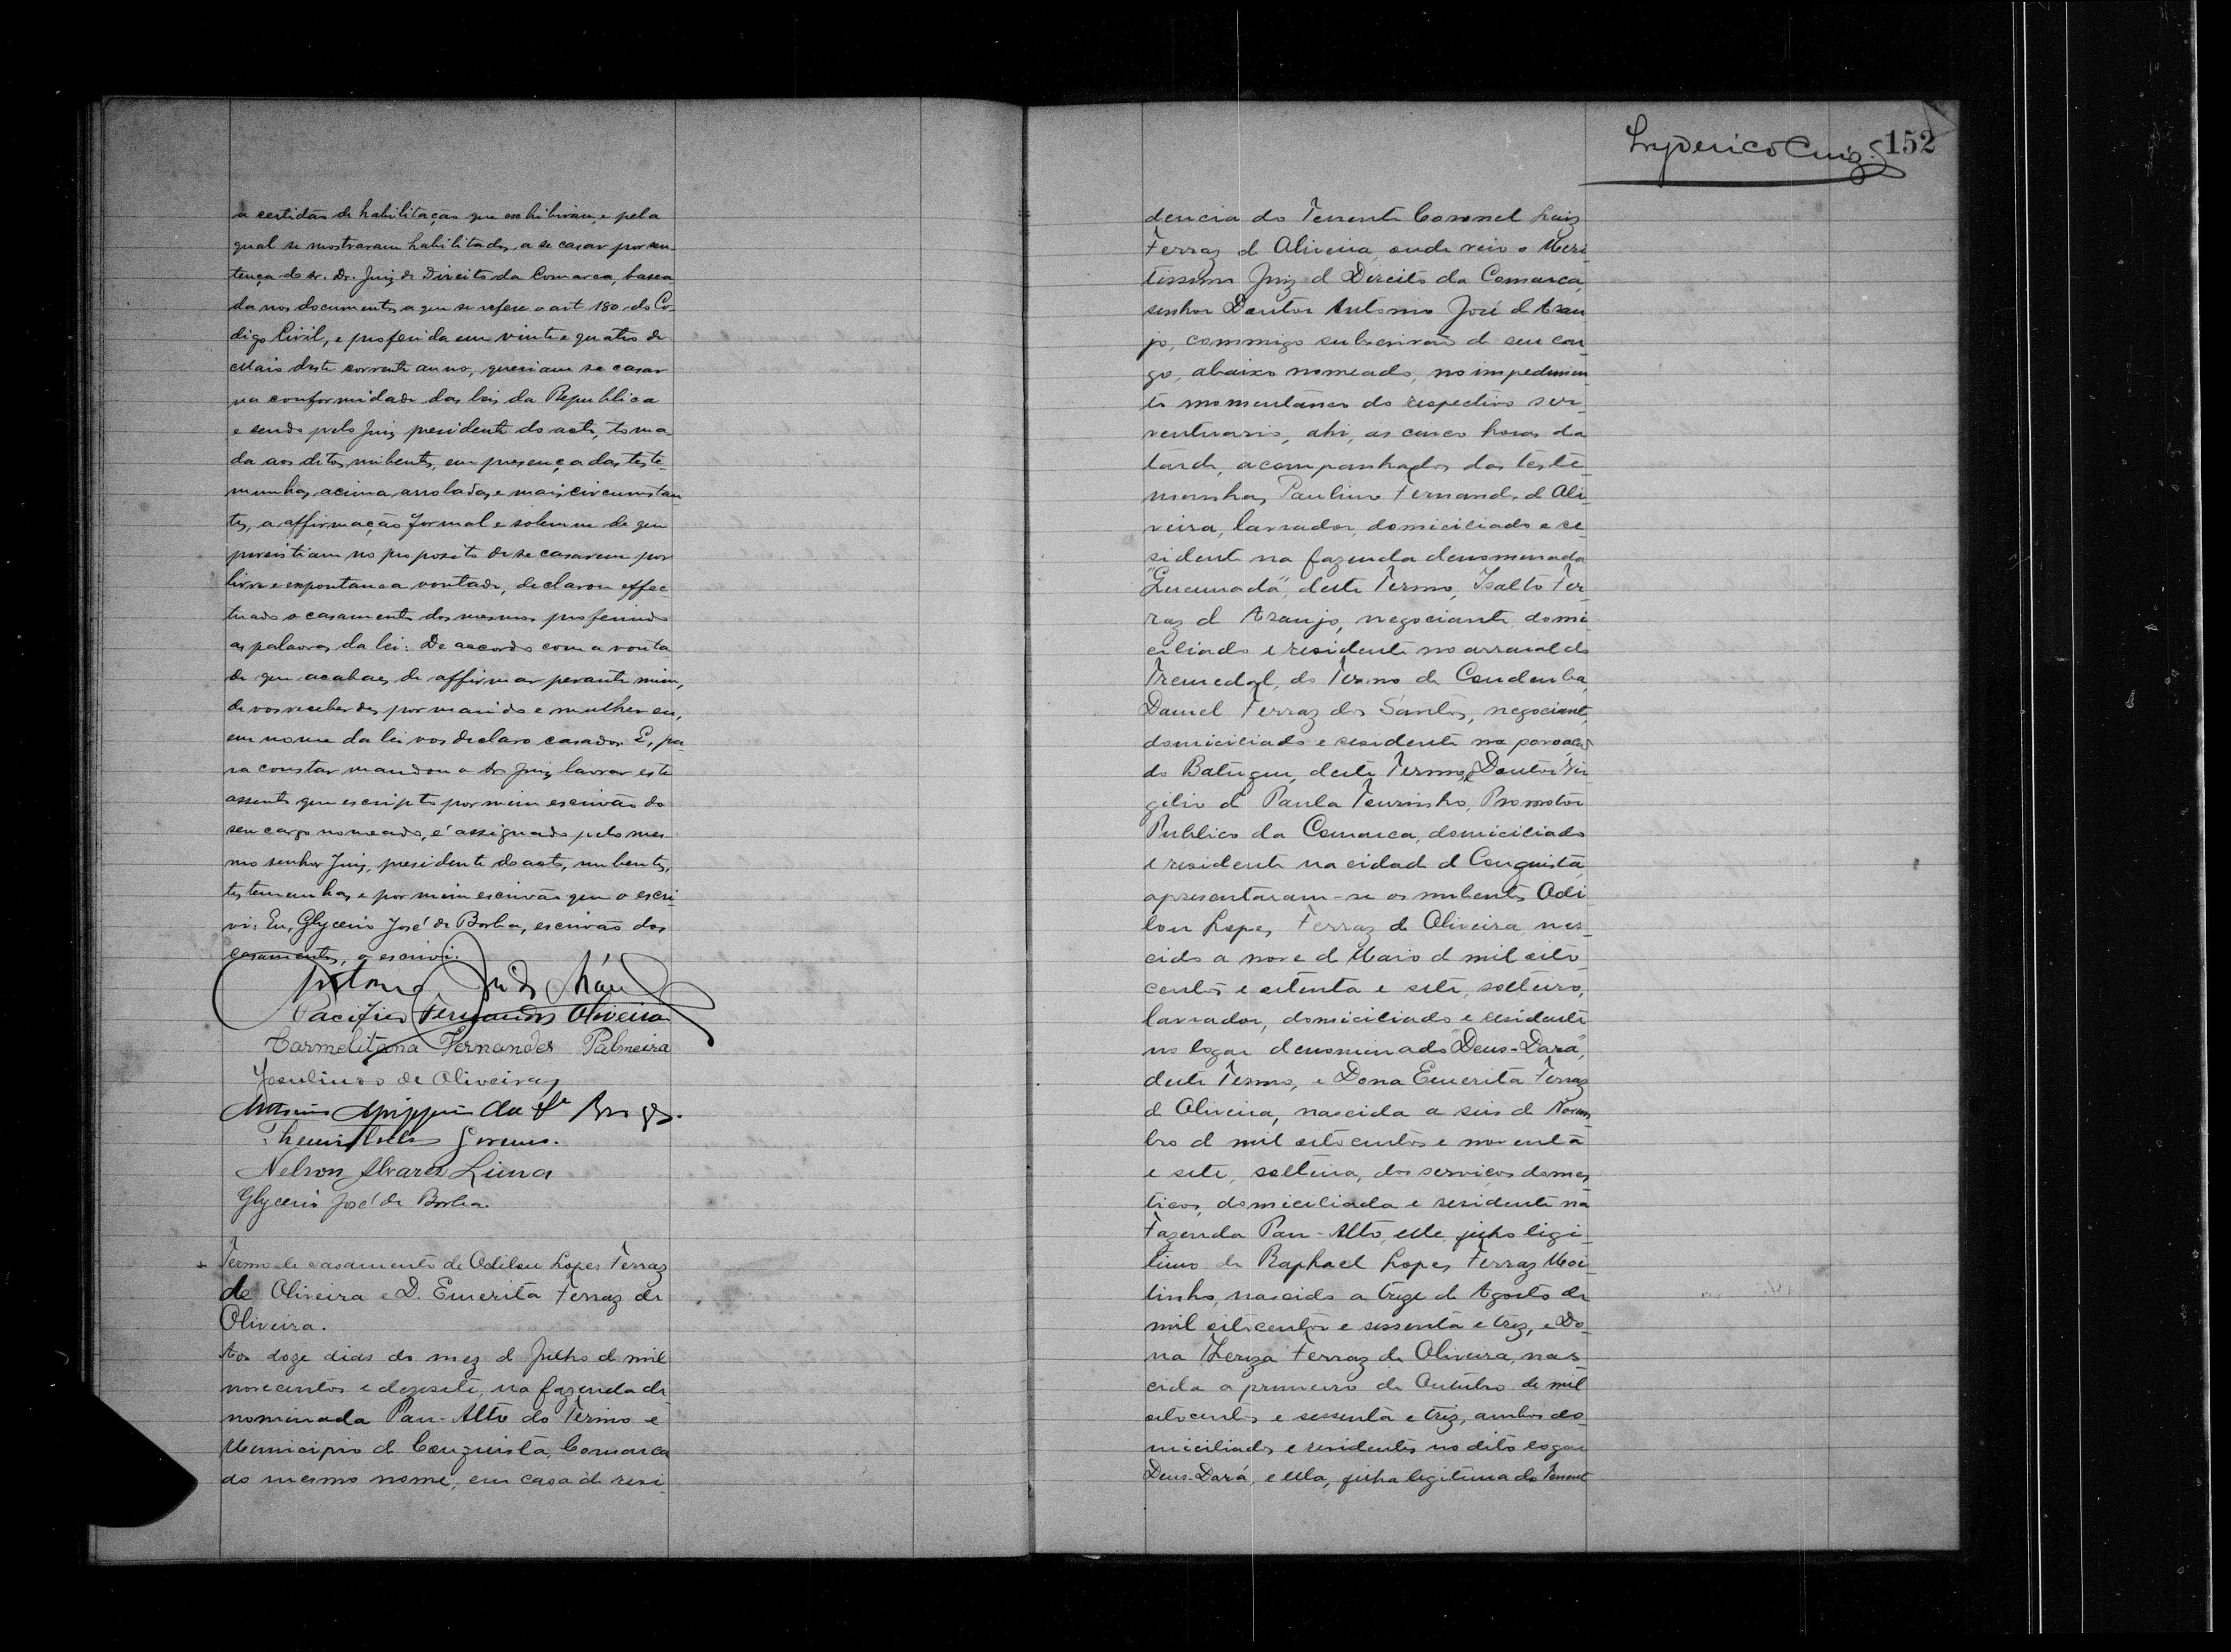 a certidão de habilitação que exhibiram, e pela
qual se mostraram habilitados a se casar por sen-
tença do sr. Dr. Juiz de Direito da Comarca, basea-
da nos documentos a que se refere o art 180 do Co-
digo Civil, e proferida em vinte e quatro de
Maio deste corrente anno, queriam se casar
na conformidade das leis da Republica
e sendo pelo Juiz presidente do acto, toma-
da aos ditos nubentes, em presença das teste-
munhas acima arroladas e mais circumstan
tes, a affirmação formal e solemne de que
persistiam no proposito de se casarem por
livre e expontanea vontade, declarou effec-
tuado o casamento dos mesmos proferindo
as palavras da lei: De accordo com a vonta
de que acabaes de affirmar perante mim,
de vos receberdes por marido e mulher eu,
em nome da lei vos declaro casados. E, pa-
ra constar mandou o Sr Juiz lavrar este
assento que escripto por mim escrivão do
seu cargo nomeado, é assignado pelo mes-
mo senhor Juiz, presidente do acto, nubentes,
testemunhas e por mim escrivão que o escri-
vi. Eu, Glycerio José de Borba, escrivão dos
casamentos, o escrivi.
Antonio José
Pacifico Fernandes Oliveira
Carmelitana Fernandes Palmeira
Jesulindo de Oliveira
Themistocles
Nelson Alvares Lima
Glycerio José de Borba
Termo de casamento de Odilon Lopes Ferraz
de Oliveira e D. Emerita Ferraz de
Oliveira.
Aos doze dias do mez d Julho d mil
novecentos e dezesete, na fazenda de
nominada Pau-Alto do Termo e
Municipio d Conquista, Comarca
do mesmo nome, em casa de resi-
Lyderico Cruz. 152
dencia do Tenente Coronel Luiz
Ferraz de Oliveira, onde veio o Meri
tissimo Juiz d Direito da Comarca,
senhor Doutor Antonio José d Arau
jo, commigo subescrivão d seu car
go, abaixo nomeado, no impedimen
to momentaneo do respectivo ser-
ventuario, ahi, as cinco horas da
tarde, acompanhados das teste-
munhas Paulino Fernandes d Oli
veira, lavrador, domiciliado e re-
sidente na fazenda denominada
deste Termo, Isalto Fer-
raz d Araujo, negociante domi-
ciliado e residente no arraial do
Tremedal, do Termo de Condeuba,
Daniel Ferraz dos Santos, negociante,
domiciliado e residente na povoação
do Batuque, deste Termo, e Doutor Vir
gilio d Paula Tourinho, Promotor
Publico da Comarca, domiciliado
e residente na cidade d Conquista,
apresentaram-se os nubentes Odi
lon Lopes Ferraz de Oliveira, nas-
cido a nove d Maio d mil oito-
centos e setenta e sete, solteiro,
lavrador, domiciliado e residente
no logar denominado "Deus-Dará",
deste Termo, e Dona Emerita Ferraz
de Oliveira, nascida a seis d Novem
bro d mil oitocentos e noventa
e sete, solteira, dos serviços domes
ticos, domiciliada e residente na
Fazenda Pau-Alto, elle filho legi-
timo de Raphael Lopes Ferraz Moi
tinho, nascido a treze de Agosto de
mil oitocentos e sessenta e trez, e Do-
na Thereza Ferraz de Oliveira, nas-
cida a primeiro de Outubro de mil
oitocentos e sessenta e trez, ambos do-
miciliados e residentes no dito logar
Deus-Dará, e ella, filha legitima do Tenent